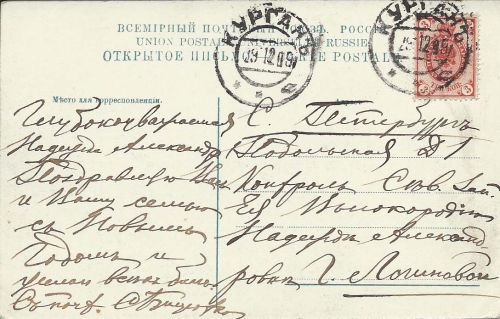 ВСЕМІРНЫЙ ПОЧТОВЫЙ СОЮЗЪ. РОССІЯ
UNION POSTALE UNIVERSELLE RUSSIE
ОТКРЫТОЕ ПИСЬМО CARTE POSTALE
КУРГАНЪ
КУРГАНЪ
Мѣсто для корреспонденціи.
Глубокоуважаемая
Надежда Александр
Поздравляю Васъ
и Вашу семью
съ Новымъ
Годомъ и
желаю всѣхъ благ
С. Петербургъ
Подольская Д 1
Контроль
Ея Высокородію
Надеждѣ Алексан
ровнѣ Г. Логиновой